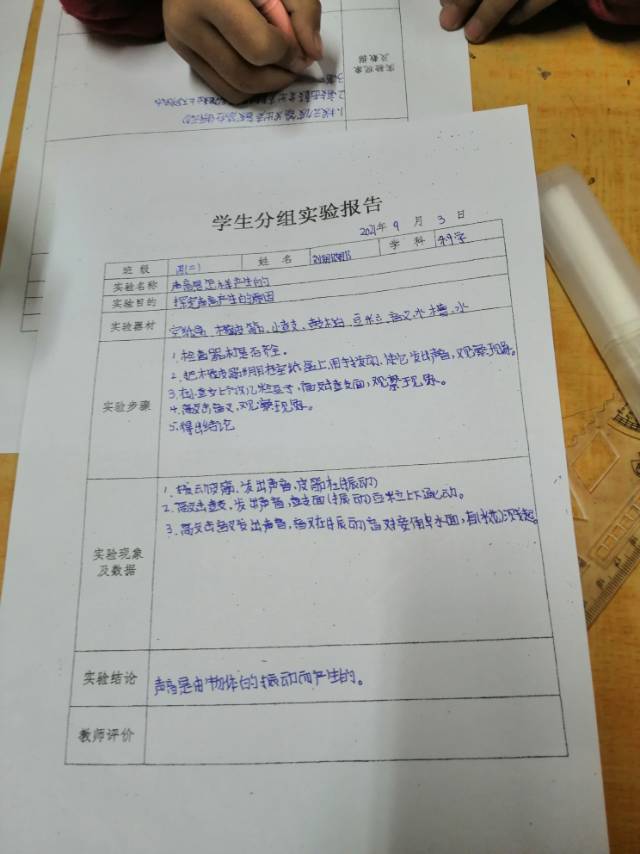 学生分组实验报告
2021年 9 月 3 日
班级 四(二) 姓名 学科 科学
实验名称 声音是怎样产生的
实验目的 探究声音产生的原因
实验器材 空纸盒、橡皮筋、小鼓、鼓槌、豆粒、音叉、水槽、水
实验步骤
1.检查器材是否齐全。
2.把橡皮筋绷在空纸盒上,用手拨动,使它发出声音,观察现象。
3.在小鼓上放几粒豆子,击鼓面,观察现象。
4.敲击音叉,观察现象。
5.得出结论
实验现象
及数据
1.拨动皮筋,发出声音,皮筋在(振动)
2.敲击鼓,发出声音,鼓面(振动)豆粒上下跳动。
3.敲击音叉发出声音,音叉在(振动)
实验结论 声音是由物体的振动而产生的。
教师评价
实验现象
及数据